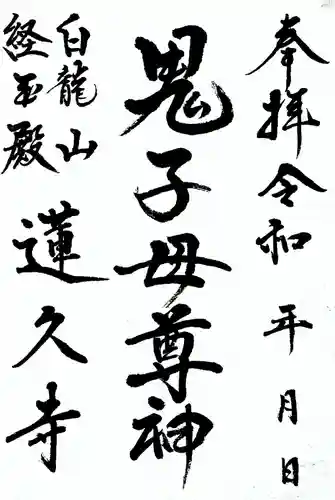 奉拝令和 年 月 日
鬼子母尊神
白龍山
経王殿
蓮久寺